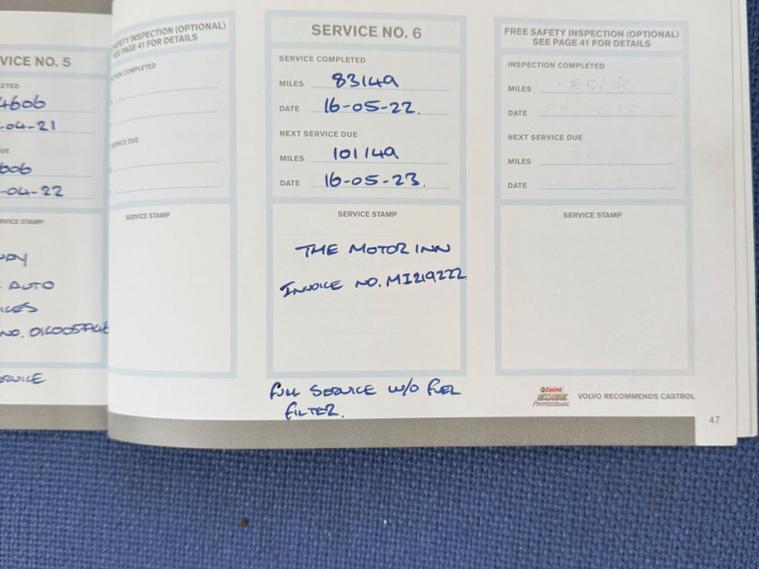 VICE NO. 5
ETED
4606
-04-21
UE
606
-04-22
RVICE STAMP
AUTO
SAFETY INSPECTION (OPTIONAL)
SEE PAGE 41 FOR DETAILS
ION COMPLETED
SERVICE DUE
SERVICE STAMP
SERVICE NO. 6
SERVICE COMPLETED
MILES 83149
DATE 16-05-22.
NEXT SERVICE DUE
MILES 101149
DATE 16-05-23.
SERVICE STAMP
THE MOTOR INN
INVOICE NO. MI219222
FULL SERVICE W/O FUEL
FILTER.
FREE SAFETY INSPECTION (OPTIONAL)
SEE PAGE 41 FOR DETAILS
INSPECTION COMPLETED
MILES
DATE
NEXT SERVICE DUE
MILES
DATE
SERVICE STAMP
Castrol
EDGE
PROFESSIONAL
VOLVO RECOMMENDS CASTROL
47